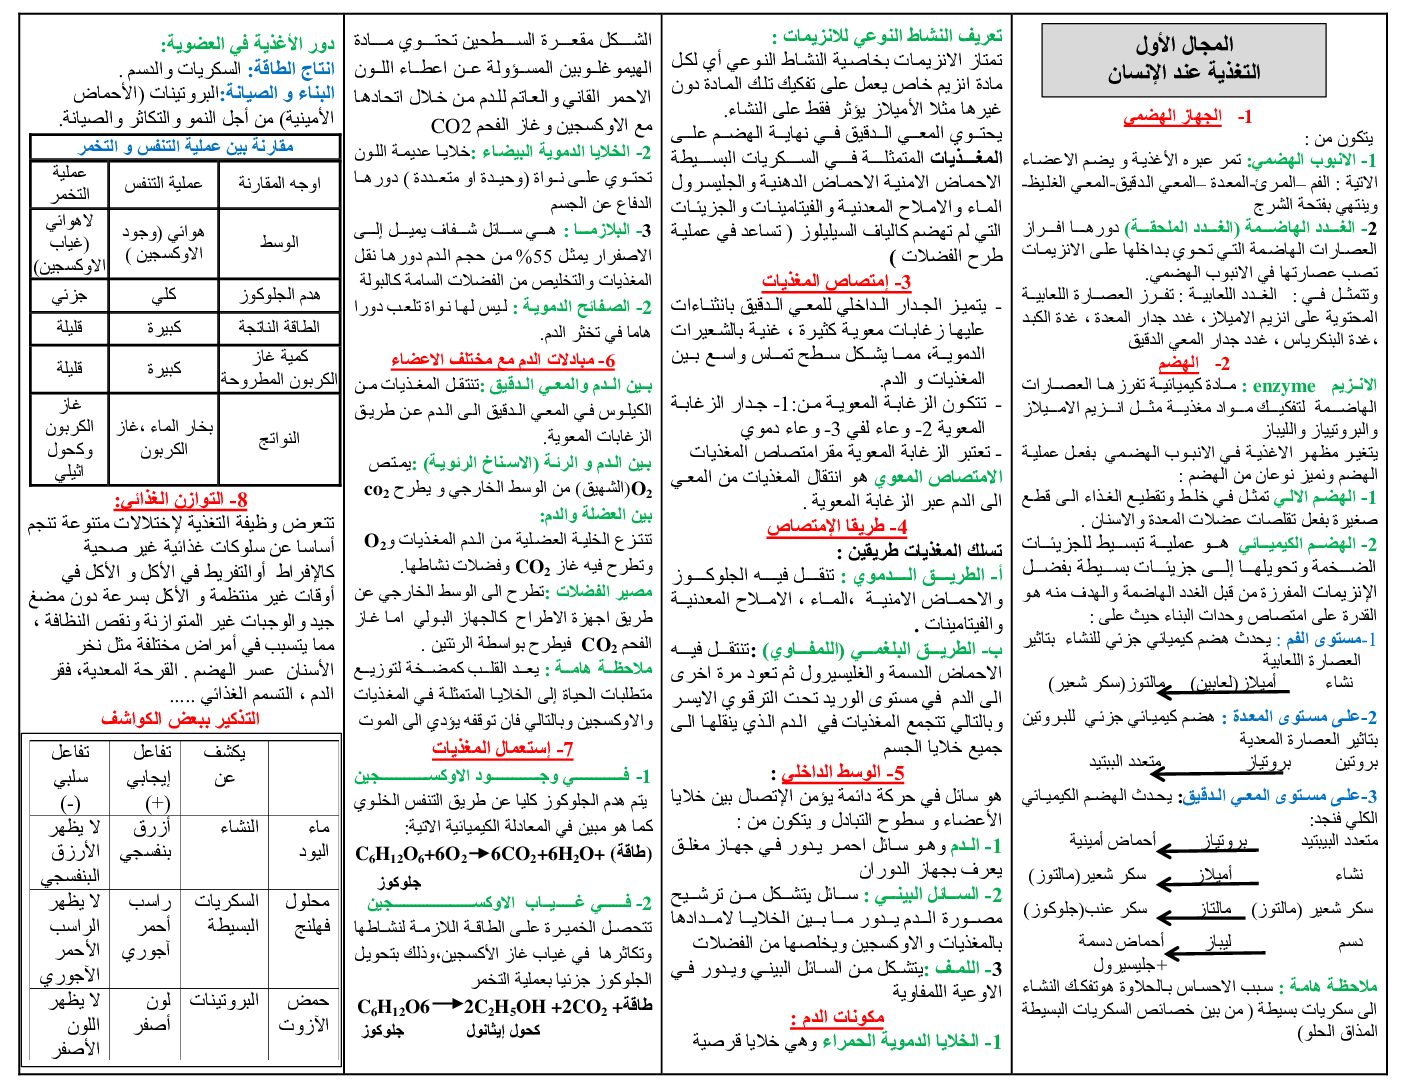 المجال الأول
التغذية عند الإنسان
1- الجهاز الهضمي
يتكون من :
1- الانبوب الهضمي: تمر عبره الأغذية و يضم الاعضاء
الاتية : الفم –المرئ-المعدة –المعي الدقيق-المعي الغليظ-
وينتهي بفتحة الشرج
2- الغدد الهاضمة (الغدد الملحقة) دورها افراز
العصارات الهاضمة التي تحوي بداخلها على الانزيمات
تصب عصارتها في الانبوب الهضمي.
وتتمثل في : الغدد اللعابية : تفرز العصارة اللعابية
المحتوية على انزيم الاميلاز، غدد جدار المعدة ، غدة الكبد
،غدة البنكرياس ، غدد جدار المعي الدقيق
2- الهضم
الانزيم enzyme : مادة كيميائية تفرزها العصارات
الهاضمة لتفكيك مواد مغذية مثل انزيم الاميلاز
والبروتيياز والليباز
يتغير مظهر الاغذية في الانبوب الهضمي بفعل عملية
الهضم ونميز نوعان من الهضم :
1- الهضم الالي تمثل في خلط وتقطيع الغذاء الى قطع
صغيرة بفعل تقلصات عضلات المعدة والاسنان .
2- الهضم الكيميائي هو عملية تبسيط للجزيئات
الضخمة وتحويلها إلى جزيئات بسيطة بفضل
الإنزيمات المفرزة من قبل الغدد الهاضمة والهدف منه هو
القدرة على امتصاص وحدات البناء حيث على :
1-مستوى الفم : يحدث هضم كيميائي جزئي للنشاء بتاثير
العصارة اللعابية
نشاء أميلاز(لعابين) مالتوز(سكر شعير)
2-على مستوى المعدة : هضم كيميائي جزئي للبروتين
بتاثير العصارة المعدية
بروتين بروتياز متعدد الببتيد
3-على مستوى المعي الدقيق: يحدث الهضم الكيميائي
الكلي فنجد:
متعدد البيبتيد بروتياز أحماض أمينية
نشاء أميلاز سكر شعير(مالتوز)
سكر شعير (مالتوز) مالتاز سكر عنب(جلوكوز)
دسم ليباز أحماض دسمة
+جليسيرول
ملاحظة هامة : سبب الاحساس بالحلاوة هوتفكك النشاء
الى سكريات بسيطة ( من بين خصائص السكريات البسيطة
المذاق الحلو)
تعريف النشاط النوعي للانزيمات :
تمتاز الانزيمات بخاصية النشاط النوعي أي لكل
مادة انزيم خاص يعمل على تفكيك تلك المادة دون
غيرها مثلا الأميلاز يؤثر فقط على النشاء.
يحتوي المعي الدقيق في نهاية الهضم على
المغذيات المتمثلة في السكريات البسيطة
الاحماض الامنية الاحماض الدهنية والجليسرول
الماء والاملاح المعدنية والفيتامينات والجزيئات
التي لم تهضم كالياف السيليلوز ( تساعد في عملية
طرح الفضلات )
3- إمتصاص المغذيات
- يتميز الجدار الداخلي للمعي الدقيق بانثناءات
عليها زغابات معوية كثيرة ، غنية بالشعيرات
الدموية، مما يشكل سطح تماس واسع بين
المغذيات و الدم.
- تتكون الزغابة المعوية من:1- جدار الزغابة
المعوية 2- وعاء لفي 3- وعاء دموي
- تعتبر الزغابة المعوية مقرامتصاص المغذيات
الامتصاص المعوي هو انتقال المغذيات من المعي
الى الدم عبر الزغابة المعوية .
4- طريقا الإمتصاص
تسلك المغذيات طريقين :
أ- الطريق الدموي : تنتقل فيه الجلوكوز
والاحماض الامنية ،الماء ، الاملاح المعدنية
والفيتامينات .
ب- الطريق البلغمي (اللمفاوي) :تنتقل فيه
الاحماض الدسمة والغليسيرول ثم تعود مرة اخرى
الى الدم في مستوى الوريد تحت الترقوي الايسر
وبالتالي تتجمع المغذيات في الدم الذي ينقلها الى
جميع خلايا الجسم
5- الوسط الداخلي :
هو سائل في حركة دائمة يؤمن الإتصال بين خلايا
الأعضاء و سطوح التبادل و يتكون من :
1- الدم وهو سائل احمر يدور في جهاز مغلق
يعرف بجهاز الدوران
2- السائل البيني : سائل يتشكل من ترشيح
مصورة الدم يدور ما بين الخلايا لامدادها
بالمغذيات والاوكسجين ويخلصها من الفضلات
3- اللمف :يتشكل من السائل البيني ويدور في
الاوعية اللمفاوية
مكونات الدم :
1- الخلايا الدموية الحمراء وهي خلايا قرصية
الشكل مقعرة السطحين تحتوي مادة
الهيموغلوبين المسؤولة عن اعطاء اللون
الاحمر القاني والعاتم للدم من خلال اتحادها
مع الاوكسجين و غاز الفحم CO2
2- الخلايا الدموية البيضاء :خلايا عديمة اللون
تحتوي على نواة (وحيدة او متعددة ) دورها
الدفاع عن الجسم
3- البلازما : هي سائل شفاف يميل إلى
الاصفرار يمثل 55% من حجم الدم دورها نقل
المغذيات والتخليص من الفضلات السامة كالبولة
2- الصفائح الدموية : ليس لها نواة تلعب دورا
هاما في تخثر الدم.
6- مبادلات الدم مع مختلف الاعضاء
بين الدم والمعي الدقيق :تنتقل المغذيات من
الكيلوس في المعي الدقيق الى الدم عن طريق
الزغابات المعوية.
بين الدم و الرئة (الاسناخ الرئوية) :يمتص
O2(الشهيق) من الوسط الخارجي و يطرح co2
بين العضلة والدم:
تنتزع الخلية العضلية من الدم المغذيات وO2
وتطرح فيه غاز CO2 وفضلات نشاطها.
مصير الفضلات :تطرح الى الوسط الخارجي عن
طريق اجهزة الاطراح كالجهاز البولي اما غاز
الفحم CO2 فيطرح بواسطة الرئتين .
ملاحظة هامة : يعد القلب كمضخة لتوزيع
متطلبات الحياة إلى الخلايا المتمثلة في المغذيات
والاوكسجين وبالتالي فان توقفه يؤدي الى الموت
7- إستعمال المغذيات
1- في وجود الاوكسجين
يتم هدم الجلوكوز كليا عن طريق التنفس الخلوي
كما هو مبين في المعادلة الكيميائية الاتية:
C6H12O6+6O2→6CO2+6H2O+ (طاقة)
جلوكوز
2- في غياب الاوكسجين
تتحصل الخميرة على الطاقة اللازمة لنشاطها
وتكاثرها في غياب غاز الأكسجين،وذلك بتحويل
الجلوكوز جزئيا بعملية التخمر
C6H12O6→2C2H5OH +2CO2 +طاقة
جلوكوز كحول إيثانول
دور الأغذية في العضوية:
انتاج الطاقة: السكريات والدسم .
البناء و الصيانة:البروتينات (الأحماض
الأمينية) من أجل النمو والتكاثر والصيانة.
مقارنة بين عملية التنفس و التخمر
اوجه المقارنة عملية التنفس عملية التخمر
الوسط هوائي (وجود الاوكسجين ) لاهوائي (غياب الاوكسجين)
هدم الجلوكوز كلي جزئي
الطاقة الناتجة كبيرة قليلة
كمية غاز الكربون المطروحة كبيرة قليلة
النواتج بخار الماء ،غاز الكربون غاز الكربون وكحول اثيلي
8- التوازن الغذائي:
تتعرض وظيفة التغذية لإختلالات متنوعة تنجم
أساسا عن سلوكات غذائية غير صحية
كالإفراط أوالتفريط في الأكل و الأكل في
أوقات غير منتظمة و الأكل بسرعة دون مضغ
جيد والوجبات غير المتوازنة ونقص النظافة ،
مما يتسبب في أمراض مختلفة مثل نخر
الأسنان عسر الهضم . القرحة المعدية، فقر
الدم ، التسمم الغذائي .....
التذكير ببعض الكواشف
يكشف عن تفاعل إيجابي (+) تفاعل سلبي (-)
ماء اليود النشاء أزرق بنفسجي لا يظهر الأزرق البنفسجي
محلول فهلنج السكريات البسيطة راسب أحمر آجوري لا يظهر الراسب الأحمر الآجوري
حمض الآزوت البروتينات لون أصفر لا يظهر اللون الأصفر